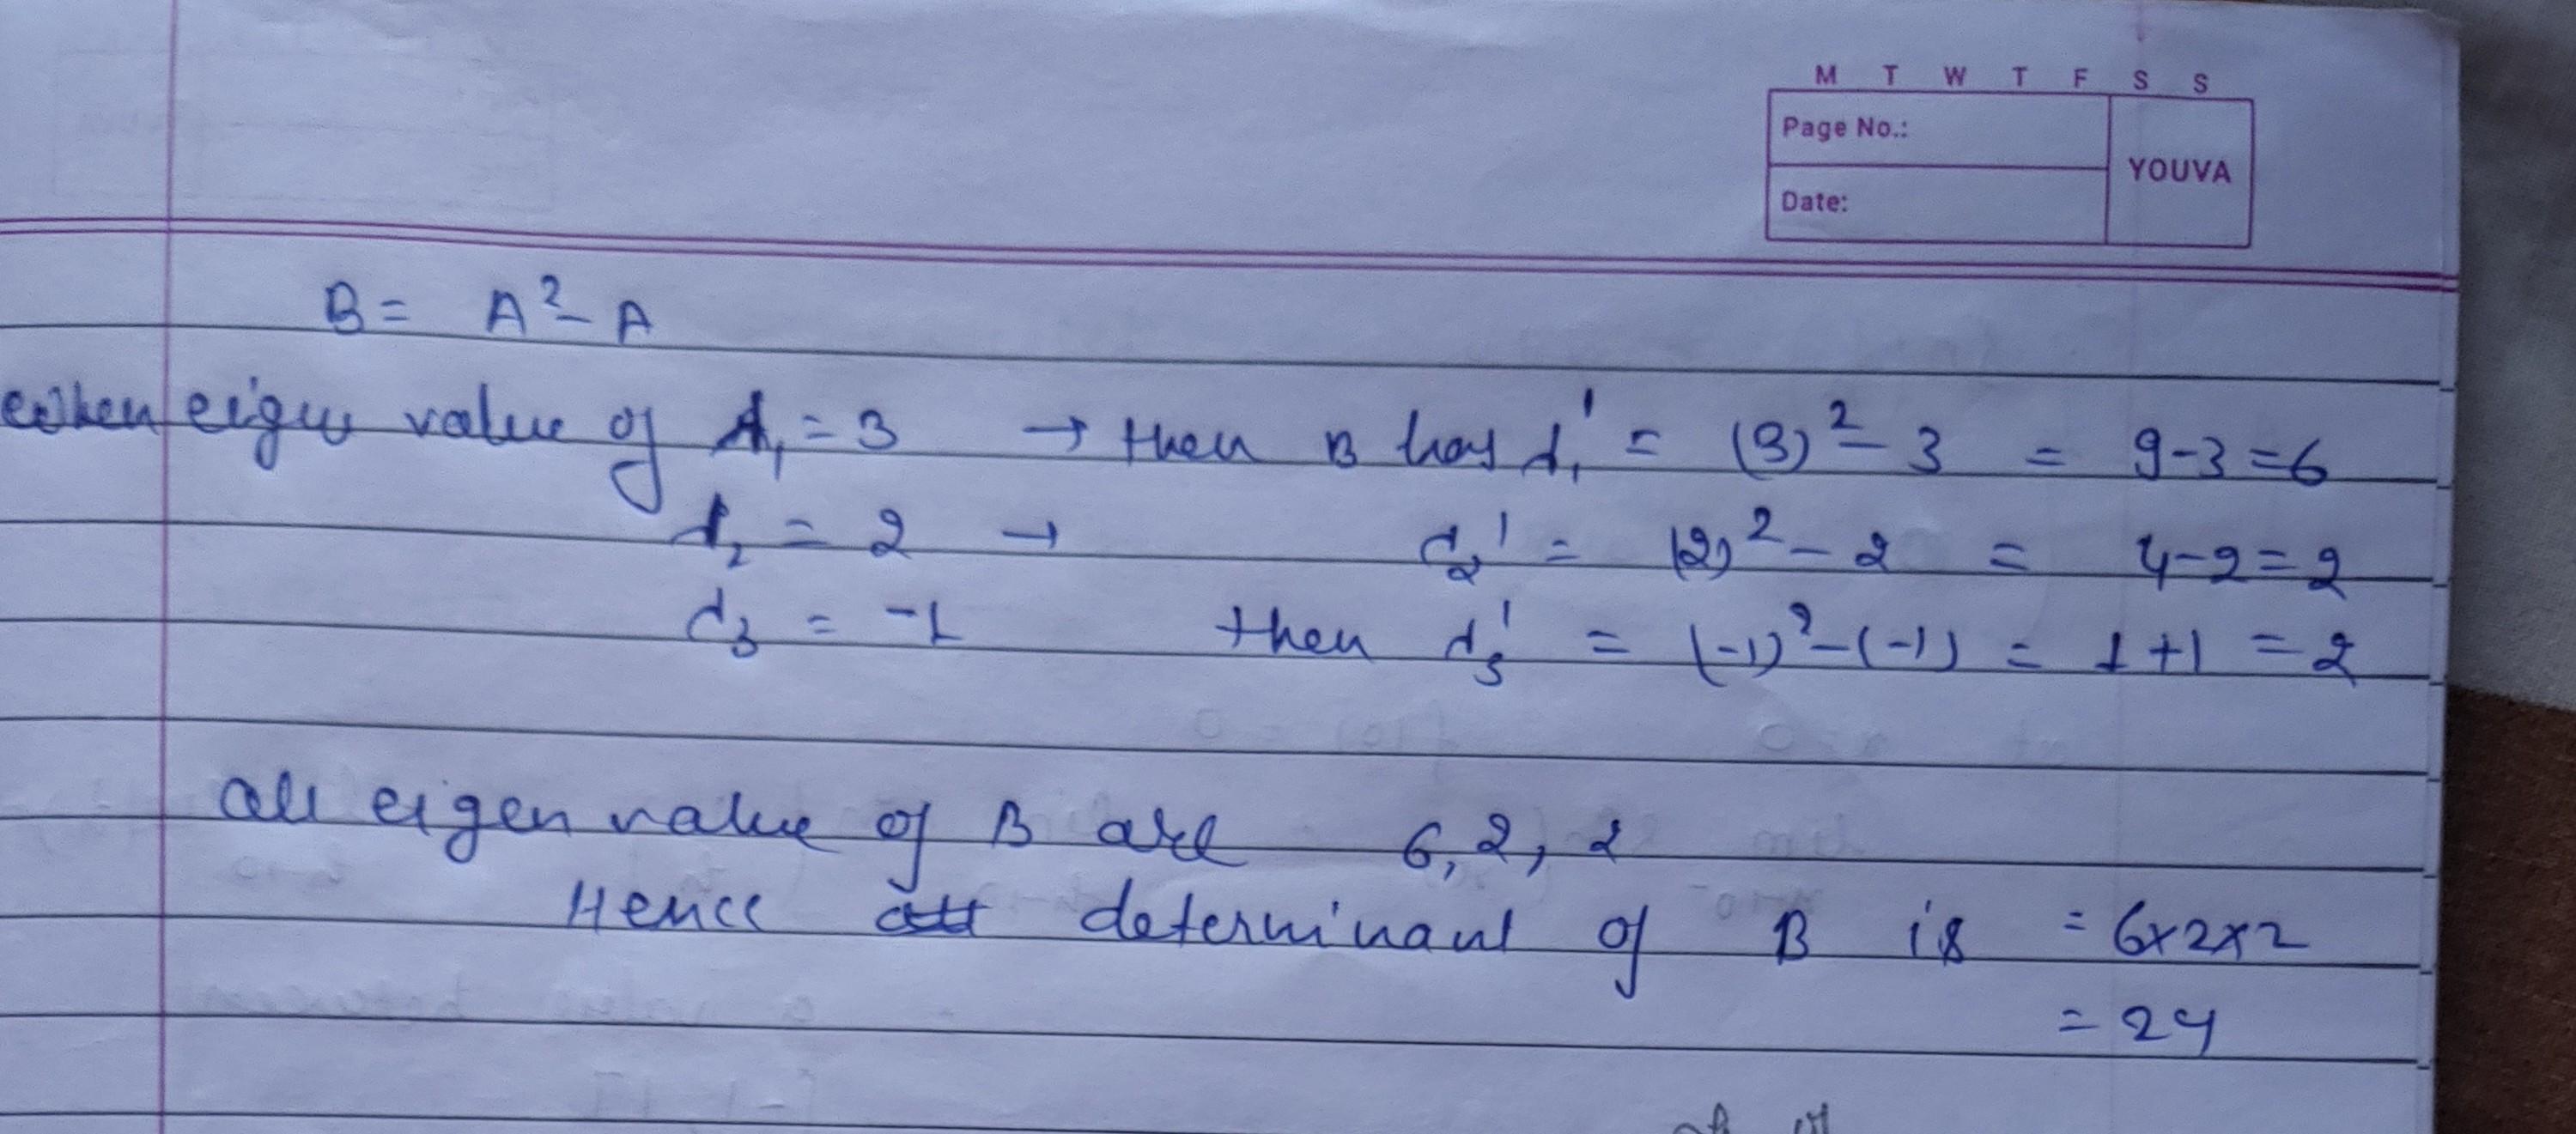 M T W T F S S
Page No.:
YOUVA
Date:
B = A² - A
When eigen value of λ₁ = 3 → then B has λ₁' = (3)² - 3 = 9-3 = 6
λ₂ = 2 → λ₂' = (2)² - 2 = 4-2 = 2
λ₃ = -1 then λ₃' = (-1)² - (-1) = 1+1 = 2
All eigen value of B are 6, 2, 2
Hence determinant of B is = 6×2×2
= 24